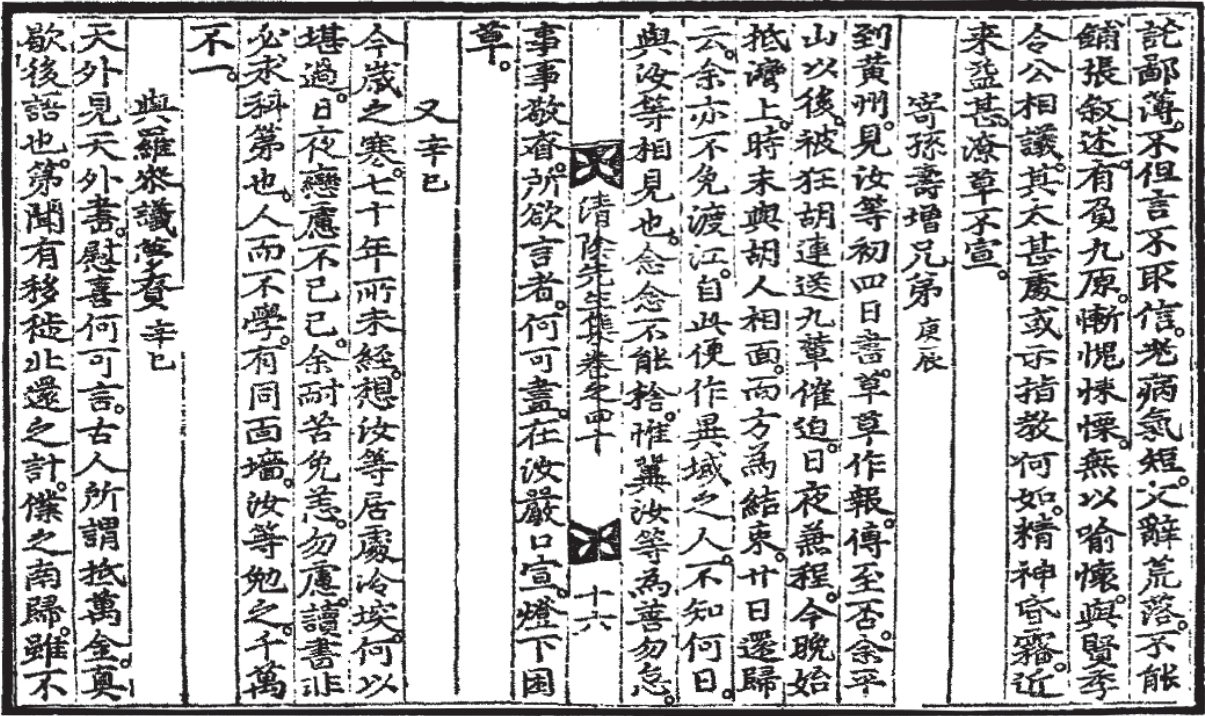 託鄙薄。不但言不取信。老病氣短。文辭荒落。不能
鋪張敘述。有負九原。慚愧悚慄。無以喻懷。與賢季
令公相議。其太甚處或示指教何如。精神昏霧。近
来益甚。潦草不宣。
寄孫壽增兄弟 庚辰
到黃州。見汝等初四日書。草草作報。傳至否。余平
山以後。被狂胡連送九輩催迫。日夜兼程。今晚始
抵灣上。時未與胡人相面。而方為結束。廿日還歸
云。余亦不免渡江。自此便作異域之人。不知何日。
與汝等相見也。念念不能捨。惟冀汝等為善勿怠。
清陰先生集卷之四十
十六
事事敬者。所欲言者。何可盡。在汝嚴口宣。燈下困
草。
又 辛巳
今歲之寒。七十年所未經。想汝等居處冷埃。何以
堪過。日夜戀慮不已已。余耐苦免恙。勿慮。讀書非
必求科第也。人而不學。有同面墻。汝等勉之。千萬
不一。
與羅參議萬賚 辛巳
天外見天外書。慰喜何可言。古人所謂抵萬金。真
歇後語也。第聞有移徙北還之計。僕之南歸。雖不